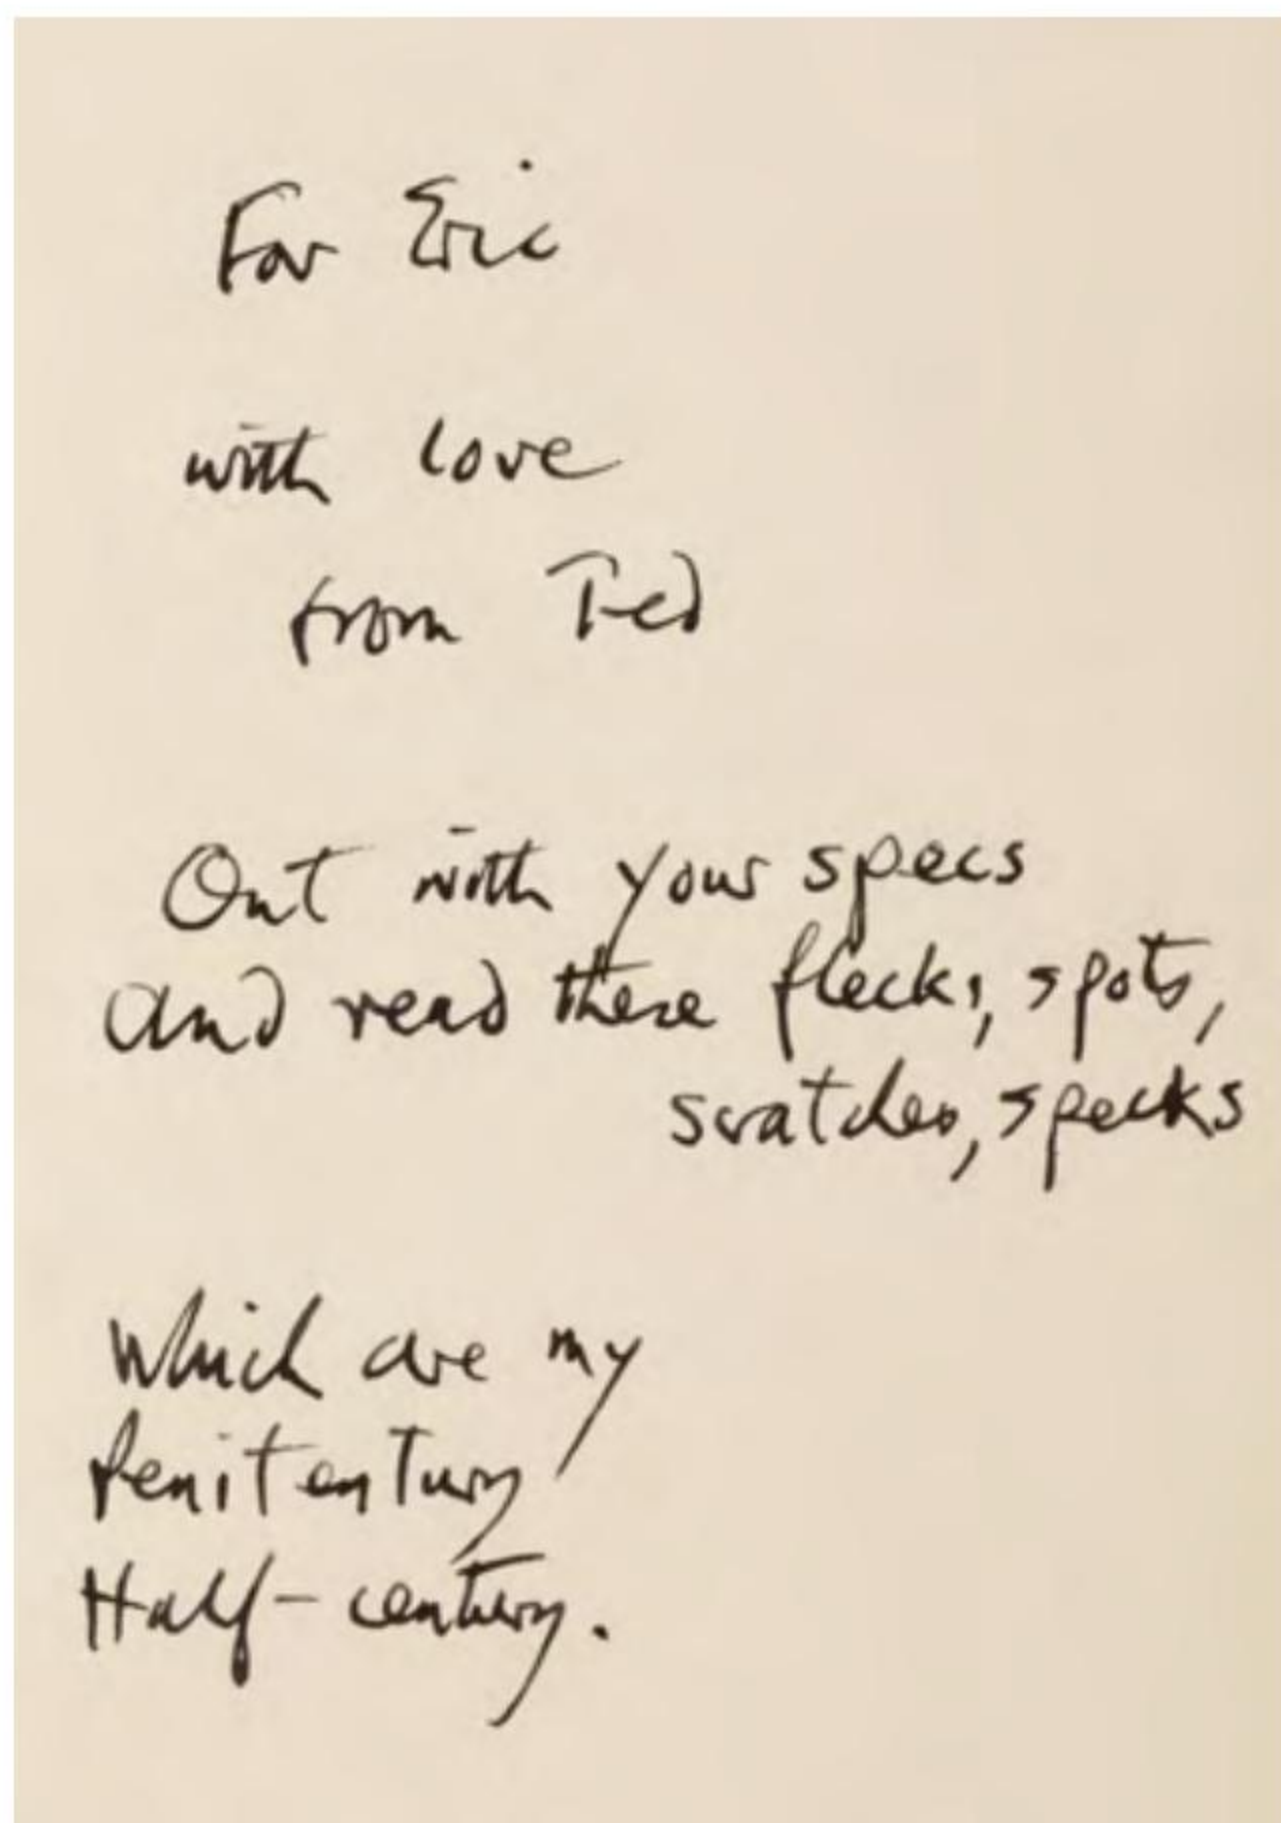 For Eric
with love
from Ted
Out with your specs
and read these flecks, spots,
scratches, specks
Which are my
Penitentury
Half-century.